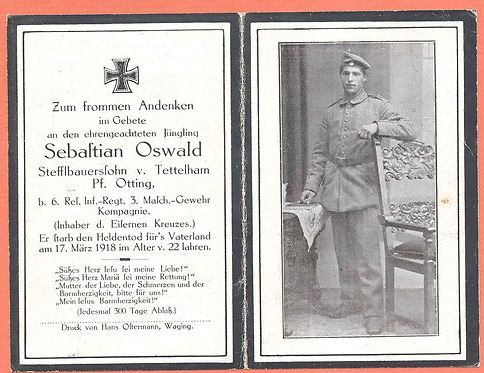 Zum frommen Andenken
im Gebete
an den ehrengeachteten Jüngling
Sebaſtian Oswald
Stefflbauersſohn v. Tettelham
Pf. Otting,
b. 6. Reſ. Inf.-Regt. 3. Maſch.-Gewehr
Kompagnie.
(Inhaber d. Eiſernen Kreuzes.)
Er ſtarb den Heldentod für's Vaterland
am 17. März 1918 im Alter v. 22 Jahren.
„Süßes Herz Jeſu ſei meine Liebe!"
„Süßes Herz Mariä ſei meine Rettung!"
„Mutter der Liebe, der Schmerzen und der
Barmherzigkeit, bitte für uns!"
„Mein Jeſus Barmherzigkeit!"
(Jedesmal 300 Tage Ablaß.)
Druck von Hans Oſtermann, Waging.